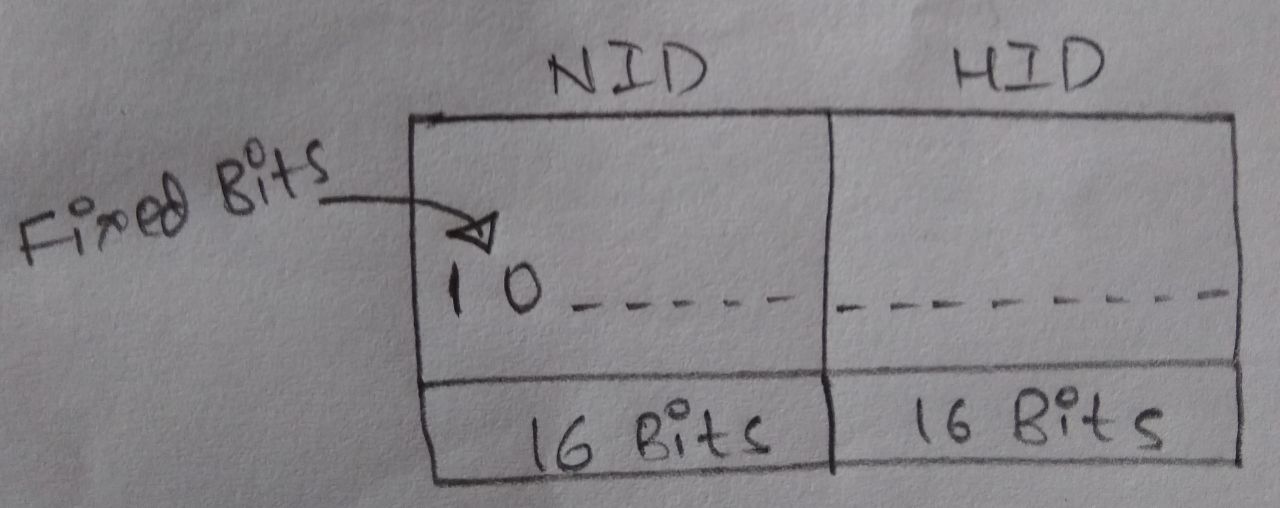 NID HID
Fixed Bits
10------ --------
16 Bits 16 Bits